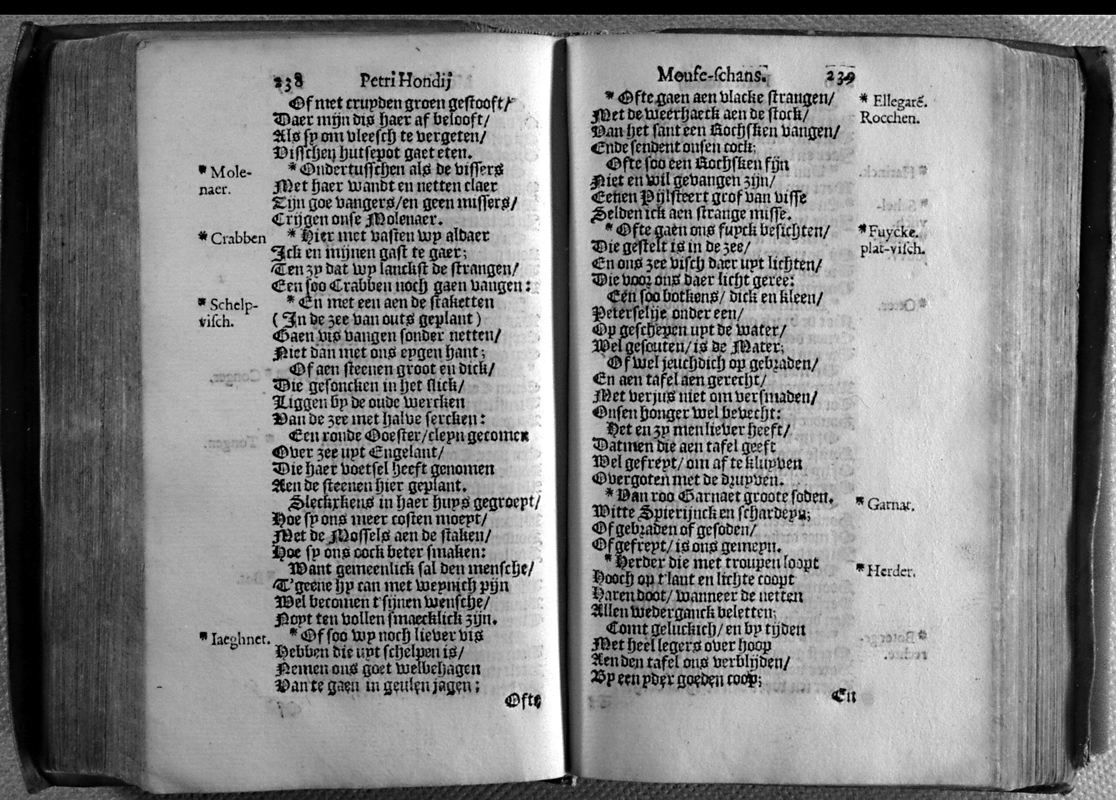 238 Petri Hondij
Of met cruyden groen gestooft/
Daer mijn dis haer af belooft/
Als sy om vleesch te vergeten/
Visschen hutsepot gaet eten.
* Mole-
naer.
* Ondertusschen als de vissers
Met haer wandt en netten claer
Zijn goe vangers/en geen missers/
Crijgen onse Molenaer.
* Crabben
* Hier met vasten wy aldaer
Ick en mijnen gast te gaer;
Ten zy dat wy lanckst de strangen/
Een soo Crabben noch gaen vangen:
* Schelp-
visch.
* En met een aen de staketten
(In de zee van outs geplant)
Gaen vis vangen sonder netten/
Niet dan met ons eygen hant;
Of aen steenen groot en dick/
Die gesoncken in het slick/
Liggen by de oude wercken
Van de zee met halve sercken:
Een ronde Ooester/cleyn gecomen
Over zee uyt Engelant/
Die haer voetsel heeft genomen
Aen de steenen hier geplant.
Sleckxkens in haer huys gegroeyt/
Hoe sy ons meer costen moeyt/
Met de Mossels aen de staken/
Hoe sy ons oock beter smaken:
Want gemeenlick sal den mensche/
T'geene hy can met weynich pijn
Wel becomen t'sijnen wensche/
Noyt ten vollen smaecklick zijn.
* Iaeghnet.
* Of soo wy noch liever vis
Hebben die uyt schelpen is/
Nemen ons goet welbehagen
Van te gaen in geulen jagen;
Ofte
Mouse-schans. 239
* Ofte gaen aen vlacke strangen/
Met de weerhaeck aen de stock/
Van het sant een Rochsken vangen/
Ende sendent onsen cock;
* Ellegarē.
Rocchen.
Ofte soo een Rochsken fijn
Niet en wil gevangen zijn/
Eenen Pijlsteert grof van visse
Selden ick aen strange misse.
* Ofte gaen ons fuyck besichten/
Die gestelt is in de zee/
En ons zee visch daer uyt lichten/
Die voor ons daer licht geree:
* Fuycke.
plat-visch.
Een soo botkens/ dick en kleen/
Peterselije onder een/
Op geschepen uyt de water/
Wel gesouten/ is de Mater;
Of wel jeuchdich op gebraden/
En aen tafel aen gerecht/
Met verjus niet om versmaden/
Onsen honger wel bevecht:
Het en zy men liever heeft/
Datmen die aen tafel geeft
Wel gefreyt/ om af te kluyven
Overgoten met de druyven.
* Van roo Garnaet groote soden,
Witte Spierijnck en schardeyn;
Of gebraden of gesoden/
Of gefreyt/ is ons gemeyn.
* Garnat.
* Herder die met troupen loopt
Hooch op t'lant en lichte coopt
Haren doot/ wanneer de netten
Allen wederganck beletten;
* Herder.
Comt geluckich/ en by tijden
Met heel legers over hoop
Aen den tafel ons verblijden/
By een yder goeden coop;
En